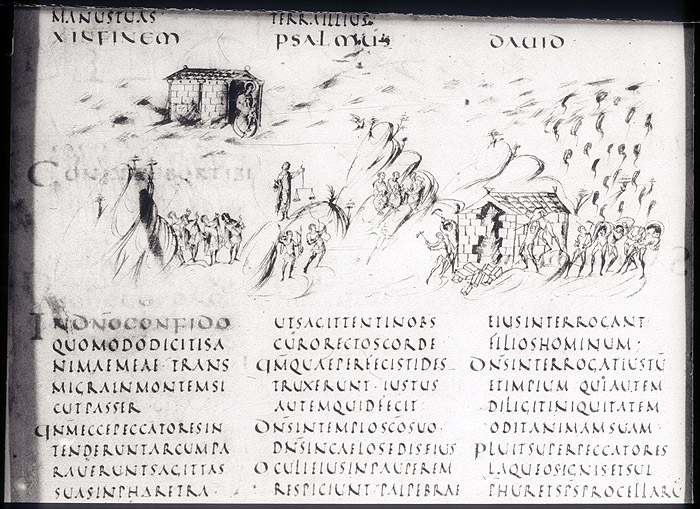 MANUSTUAS
TERRAILLIUS
XINFINEM PSALMUS DAVID
INDNOCONFIDO
QUOMODODICITISA
NIMAEMEAE TRANS
MIGRAINMONTEMSI
CUTPASSER
QNMECCEPECCATORESIN
TENDERUNTARCUMPA
RAUERUNTSAGITTAS
SUASINPHARETRA
UTSAGITTENTINOBS
CURORECTOSCORDE
QMQUAEPERFECISTIDES
TRUXERUNT IUSTUS
AUTEMQUIDFECIT
DNSINTEMPLOSCOSUO
DNSINCAELOSEDISEIUS
OCULIEIUSINPAUPEREM
RESPICIUNT PALPEBRAE
EIUSINTERROGANT
FILIOSHOMINUM
DNSINTERROGATIUSTU
ETIMPIUM QUIAUTEM
DILIGITINIQUITATEM
ODITANIMAMSUAM
PLUITSUPERPECCATORES
LAQUEOSIGNISETSUL
PHURETSPSPROCELLARU